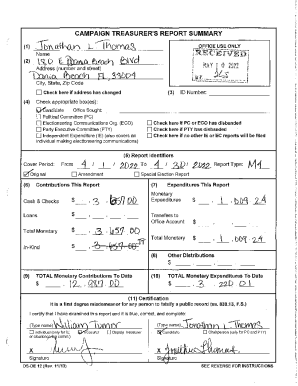 CAMPAIGN TREASURER'S REPORT SUMMARY
(1) Jonathan L Thomas
Name
OFFICE USE ONLY
RECEIVED
MAY 10 2022
(2) 180 E Dania Beach Blvd
Address (number and street)
Dania Beach FL, 33004
City, State, Zip Code
Check here if address has changed
(3) ID Number:
(4) Check appropriate box(es):
Candidate Office Sought:
Political Committee (PC)
Electioneering Communications Org. (ECO)
Check here if PC or ECO has disbanded
Party Executive Committee (PTY)
Check here if PTY has disbanded
Independent Expenditure (IE) (also covers an
individual making electioneering communications)
Check here if no other IE or EC reports will be filed
(5) Report Identifiers
Cover Period: From 4 / 1 / 2022 To 4 / 30 / 2022 Report Type: M4
Original Amendment Special Election Report
(6) Contributions This Report
(7) Expenditures This Report
Cash & Checks $ 3 657 00
Monetary
Expenditures $ 1 009 24
Loans $
Transfers to
Office Account $
Total Monetary $ 3 657 00
Total Monetary $ 1 009 24
In-Kind $
(8) Other Distributions
$
(9) TOTAL Monetary Contributions To Date
$ 12 987 00
(10) TOTAL Monetary Expenditures To Date
$ 3 220 01
(11) Certification
It is a first degree misdemeanor for any person to falsify a public record (ss. 839.13, F.S.)
I certify that I have examined this report and it is true, correct, and complete:
(Type name) William Turner
(Type name) Jonathan L Thomas
Individual (only for IE
or electioneering comm.)
Treasurer
Deputy Treasurer
Candidate
Chairperson (only for PC and PTY)
X
Signature
X
Signature
DS-DE 12 (Rev. 11/13)
SEE REVERSE FOR INSTRUCTIONS